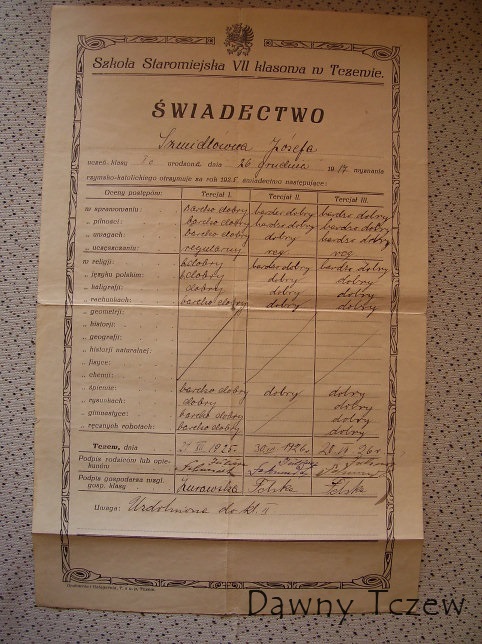 Szkoła Staromiejska VII klasowa w Tczewie.
ŚWIADECTWO
Szmidtówna Józefa
uczeń klasy I c urodzona dnia 26 grudnia 1917, wyznania
rzymsko-katolickiego otrzymuje za rok 1925 świadectwo następujące:
Oceny postępów: Tercjał I. Tercjał II. Tercjał III.
w sprawowaniu bardzo dobry bardzo dobry bardzo dobry
„ pilności: bardzo dobry bardzo dobry bardzo dobry
„ uwagach: bardzo dobry dobry bardzo dobry
„ uczęszczaniu: regularny reg. reg.
w religji: b. dobry bardzo dobry bardzo dobry
„ języku polskim: b. dobry dobry dobry
„ kaligrafji: dobry dobry dobry
„ rachunkach: bardzo dobry dobry dobry
„ geometrji:
„ historji:
„ geografji:
„ historji naturalnej:
„ fizyce:
„ chemji:
„ śpiewie: bardzo dobry dobry dobry
„ rysunkach: dobry dobry
„ gimnastyce: bardzo dobry dobry
„ ręcznych robotach: bardzo dobry dobry
Tczew, dnia 1925. 1926. 26 r.
Podpis rodziców lub opiekunów
Podpis gospodarza wzgl. gosp. klasy Żurawska Polska Polska
Uwaga: Uzdolniona do kl. II
Dawny Tczew